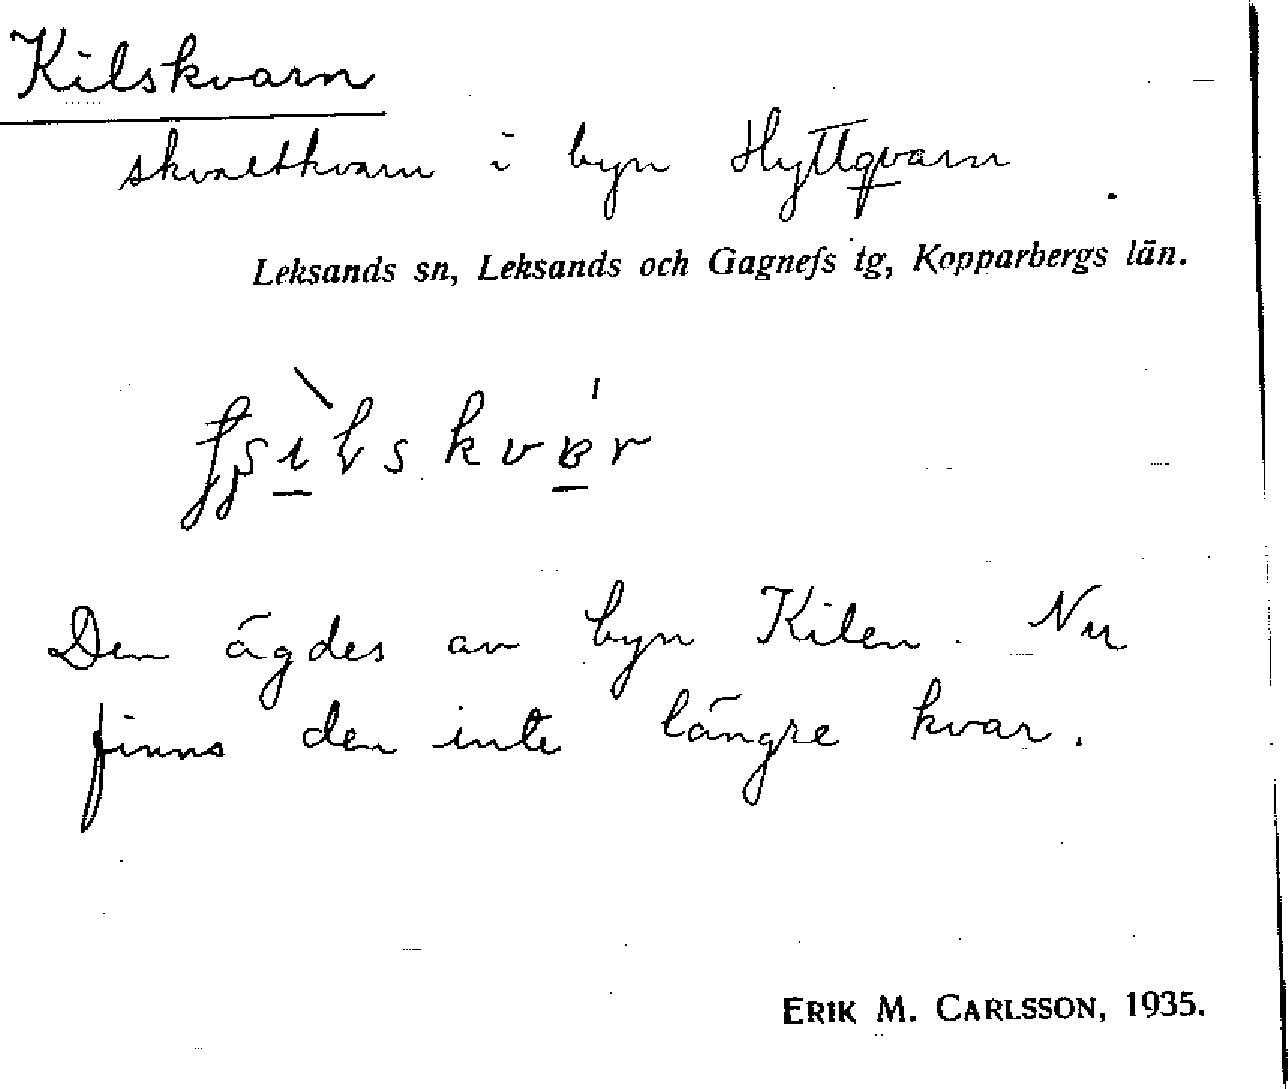 Kilskvarn
skvaltkvarn i byn Hyttqvarn
Leksands sn, Leksands och Gagnefs tg, Kopparbergs län.
Den ägdes av byn Kilen. Nu
finns den inte längre kvar.
ERIK M. CARLSSON, 1935.